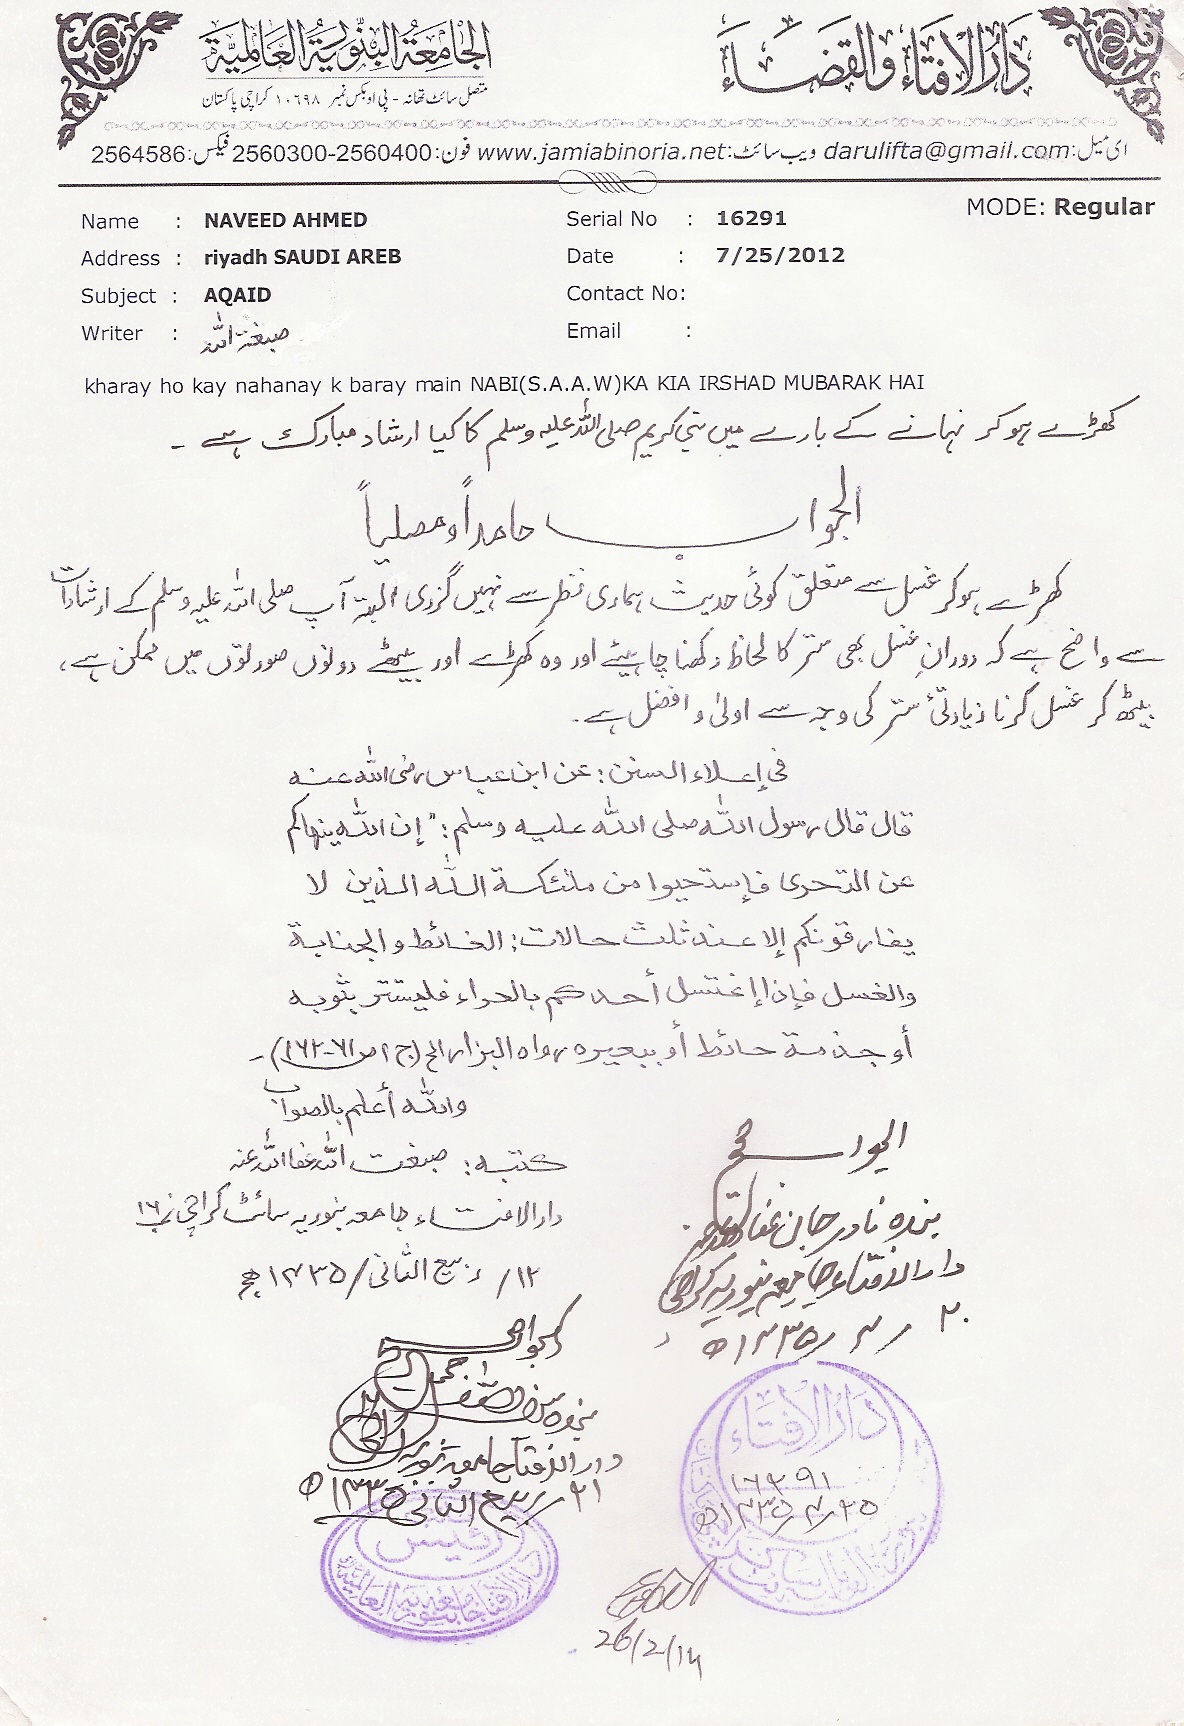 الجامعة البنورية العالمية
دار الافتاء والقضاء
متصل سائٹ تھانہ - پی او بکس نمبر ۱۰۶۹۸ کراچی پاکستان
ای میل:darulifta@gmail.com ویب سائٹ:www.jamiabinoria.net فون:2560300-2560400 فیکس:2564586
MODE: Regular
Name : NAVEED AHMED
Serial No : 16291
Address : riyadh SAUDI AREB
Date : 7/25/2012
Subject : AQAID
Contact No:
Writer : صبغۃ اللہ
Email :
kharay ho kay nahanay k baray main NABI(S.A.A.W)KA KIA IRSHAD MUBARAK HAI
کھڑے ہوکر نہانے کے بارے میں نبی کریم صلی اللہ علیہ وسلم کا کیا ارشاد مبارک ہے ۔
الجواب حامداً ومصلیاً
کھڑے ہوکر غسل سے متعلق کوئی حدیث ہماری نظر سے نہیں گزری البتہ آپ صلی اللہ علیہ وسلم کے ارشادات
سے واضح ہے کہ دورانِ غسل بھی ستر کا لحاظ رکھنا چاہیئے اور وہ کھڑے اور بیٹھے دونوں صورتوں میں ممکن ہے،
بیٹھ کر غسل کرنا زیادتیٔ ستر کی وجہ سے اولیٰ و افضل ہے۔
فی إعلاء السنن: عن ابن عباس رضی اللہ عنہ
قال قال رسول اللہ صلی اللہ علیہ وسلم: "إن اللہ ینھاکم
عن التعری فإستحیوا من ملئکة اللہ الذین لا
یفارقونکم إلا عند ثلث حالات: الغائط والجنابة
والغسل فإذا إغتسل أحدکم بالعراء فلیستتر بثوبہ
أو جذمة حائط أو ببعیرہ رواہ البزار الخ (ج ۱ ص ۶۱-۱۶۲)۔
واللہ أعلم بالصواب
کتبہ: صبغت اللہ عفا اللہ عنہ
دار الافتاء جامعہ بنوریہ سائٹ کراچی نمبر ۱۶
۱۲/ ربیع الثانی/ ۱۴۳۵ھ
الجواب صحیح
بندہ نادر جان عفا اللہ عنہ
دار الافتاء جامعہ بنوریہ کراچی
۲۰ / ۴ / ۱۴۳۵ھ
الجواب صحیح
دار الافتاء جامعہ بنوریہ
۲۱ ربیع الثانی ۱۴۳۵ھ
رئیس
دار الافتاء جامعہ بنوریہ العالمیہ
دار الافتاء
۱۶۲۹۱
۲۵/۴/۱۴۳۵ھ
26/2/14